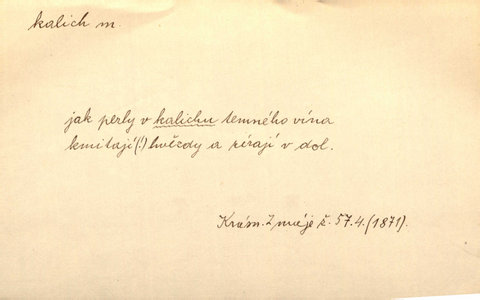 kalich m.
jak perly v kalichu temného vína
kmitají(!) hvězdy a zírají v dol.
Krásn. Z máje č. 57.4. (1871).